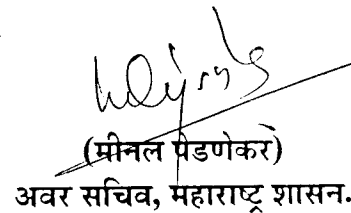 (मीनल पेडणेकर)
अवर सचिव, महाराष्ट्र शासन.